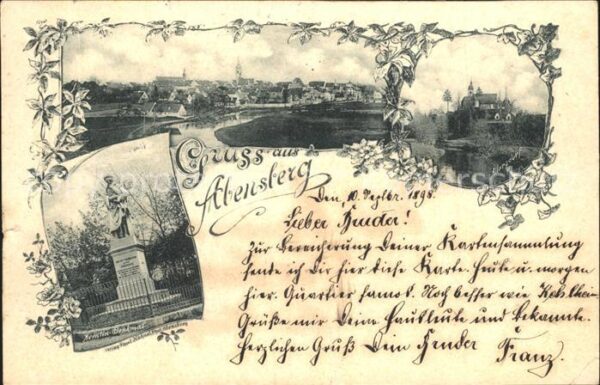 Gruss aus
Abensberg
Den, 10. Septbr. 1898.
Lieber Bruder!
Zur Bereicherung Deiner Kartensammlung
sende ich Dir hier diese Karte. Heute u. morgen
hier. Quartier famos. Noch besser wie Kehlheim
Grüße mir Deine Hausleute und Bekannte.
Herzlichen Gruß Dein Bruder Franz.
Aventin-Denkmal